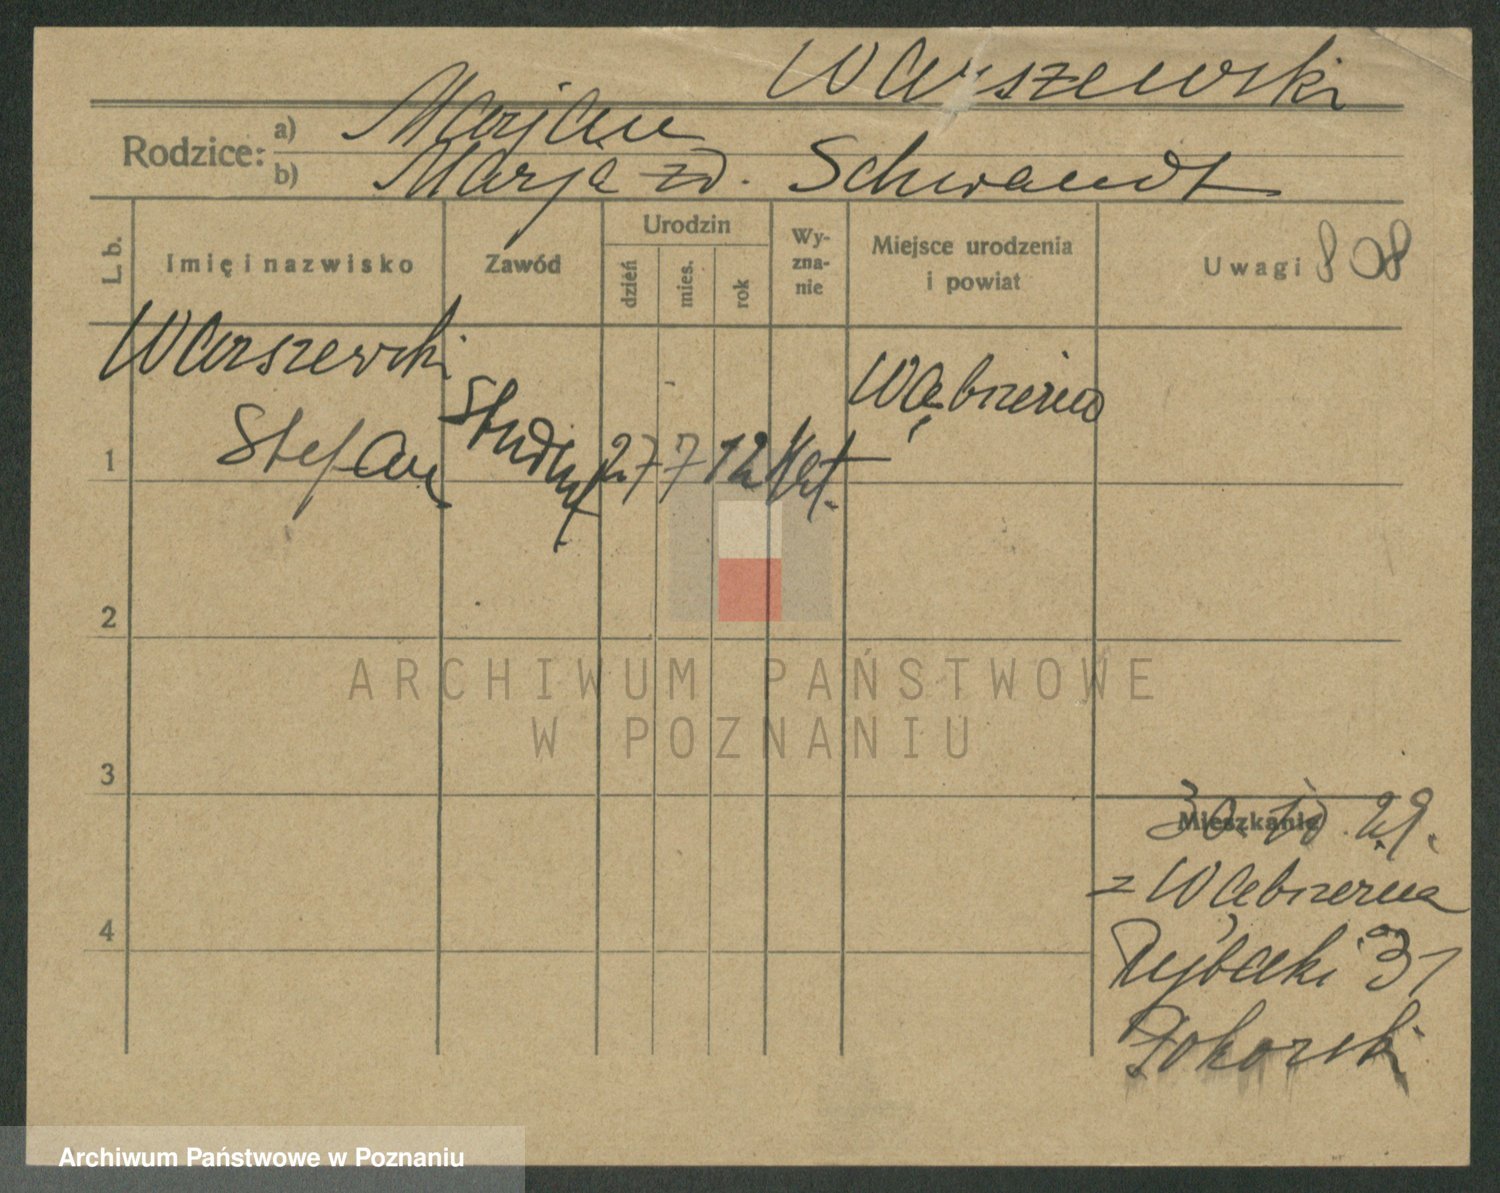 Warszewski
Rodzice: a) Marjan
b) Marja zd. Schwandt
L. b. Imię i nazwisko Zawód Urodzin dzień mies. rok Wy-zna-nie Miejsce urodzenia i powiat Uwagi 808
Warszewski Wąbrzeźno
1 Stefan Student 27 7 12 kat.
2
ARCHIWUM PAŃSTWOWE
W POZNANIU
3
Mieszkanie 30. 10. 29.
z Wąbrzeźna
4
Rybaki 31
Archiwum Państwowe w Poznaniu